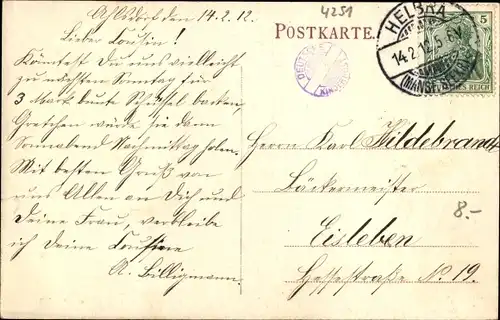 Ahlsdorf den 14.2.12.
Lieber Cousin!
Könntest du uns vielleicht
zu nächsten Sonntag für
3 Mark bunte Schüssel backen,
Gretchen würde sie dann
Sonnabend Nachmittag holen.
Mit besten Gruß von
uns Allen an Dich und
Deine Frau, verbleibe
ich Deine Cousine
A. Billigmann.
4251
POSTKARTE.
DEUTSCHE
HELBRA
14.2.12.5-6V
(MANSF.
5
REICH
Herrn Karl Hildebrandt
Bäckermeister
8.-
Eisleben
Hallestraße No. 19.